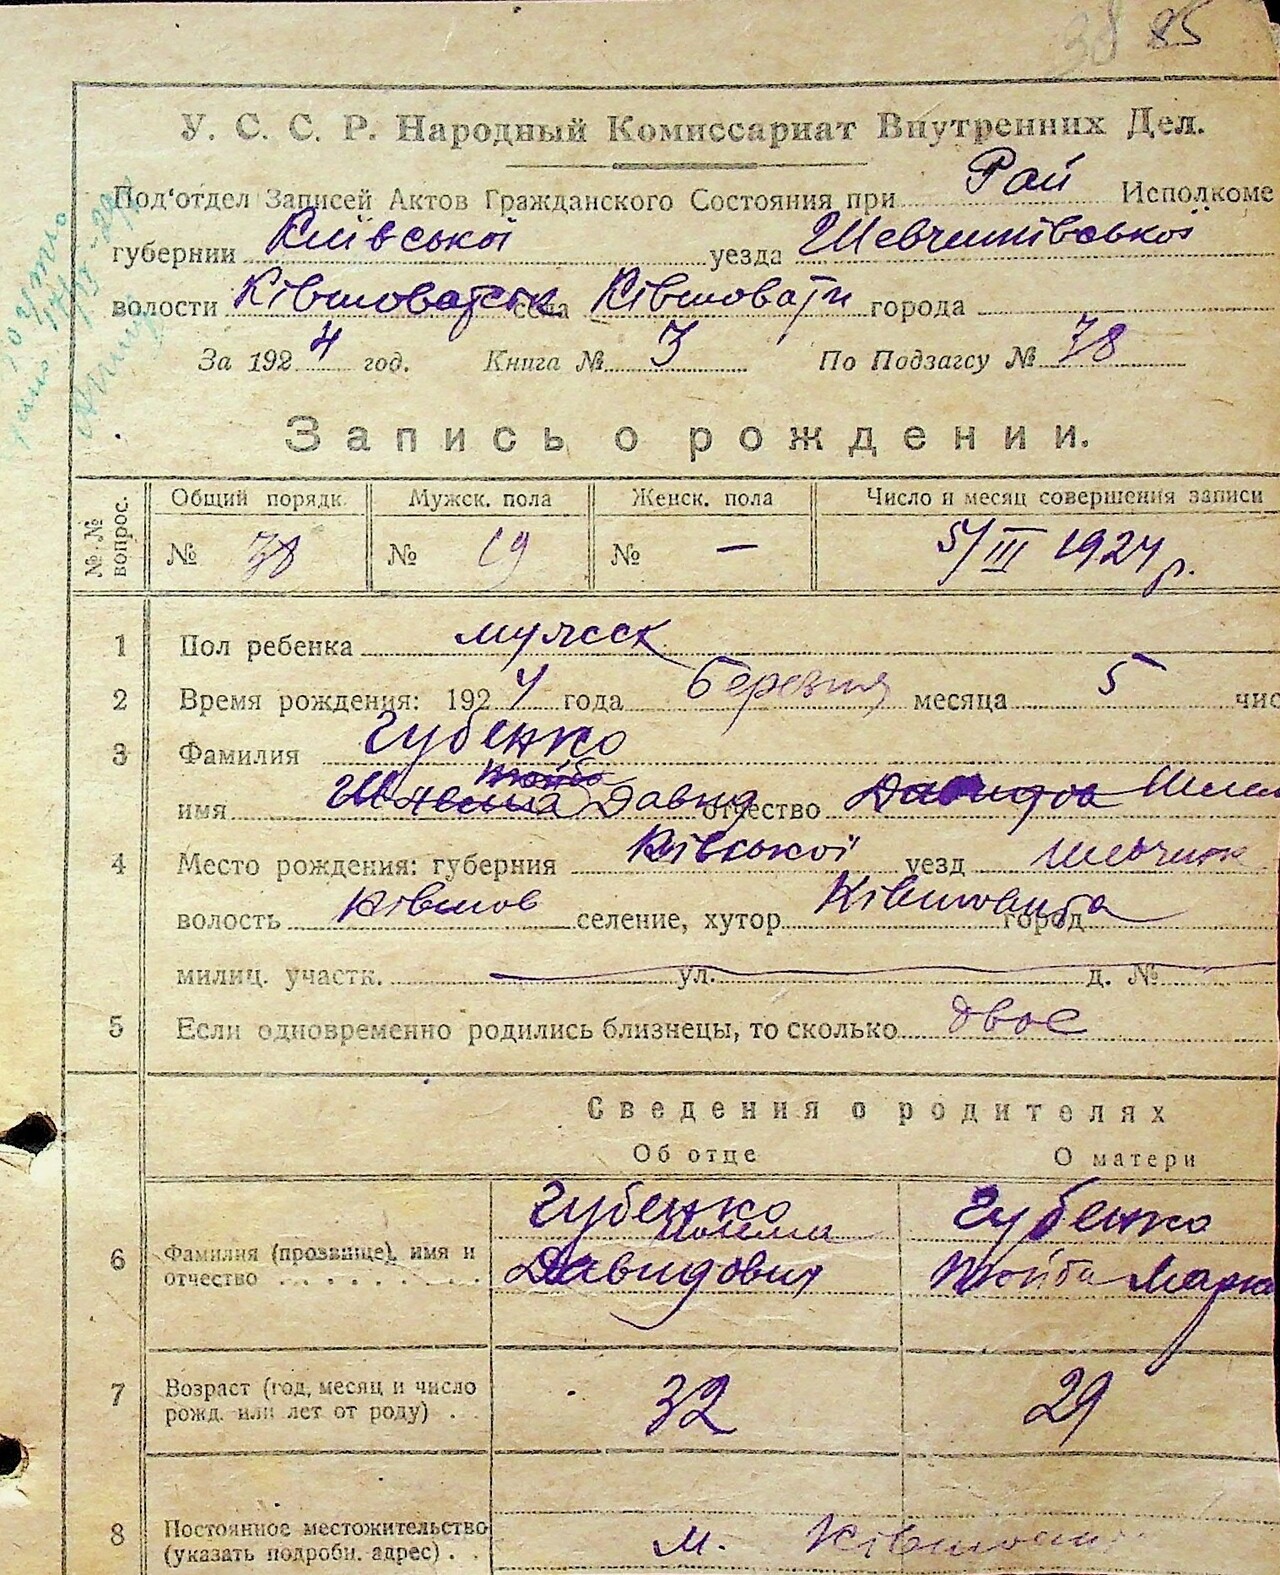 38 85
У. С. С. Р. Народный Комиссариат Внутренних Дел.
Под'отдел Записей Актов Гражданского Состояния при Рай Исполкоме
губернии Київської уезда Шевченківської
волости села Ківшовати города
За 1924 год. Книга № 3 По Подзагсу № 38
Запись о рождении.
№№ вопрос. Общий порядк. Мужск. пола Женск. пола Число и месяц совершения записи
№ 38 № 19 № — 5/III 1924 р.
1 Пол ребенка мужеск
2 Время рождения: 1924 года Березня месяца 5 чис
3 Фамилия Губенко
имя Давид отчество
4 Место рождения: губерния Київської уезд Шевченк
волость Ківшов селение, хутор Ківшовата город
милиц. участк. ул. д. №
5 Если одновременно родились близнецы, то сколько двое
Сведения о родителях
Об отце О матери
6 Фамилия (прозвище), имя и отчество Губенко Давидович Губенко
7 Возраст (год, месяц и число рожд. или лет от роду) 32 29
8 Постоянное местожительство (указать подробн. адрес) м.